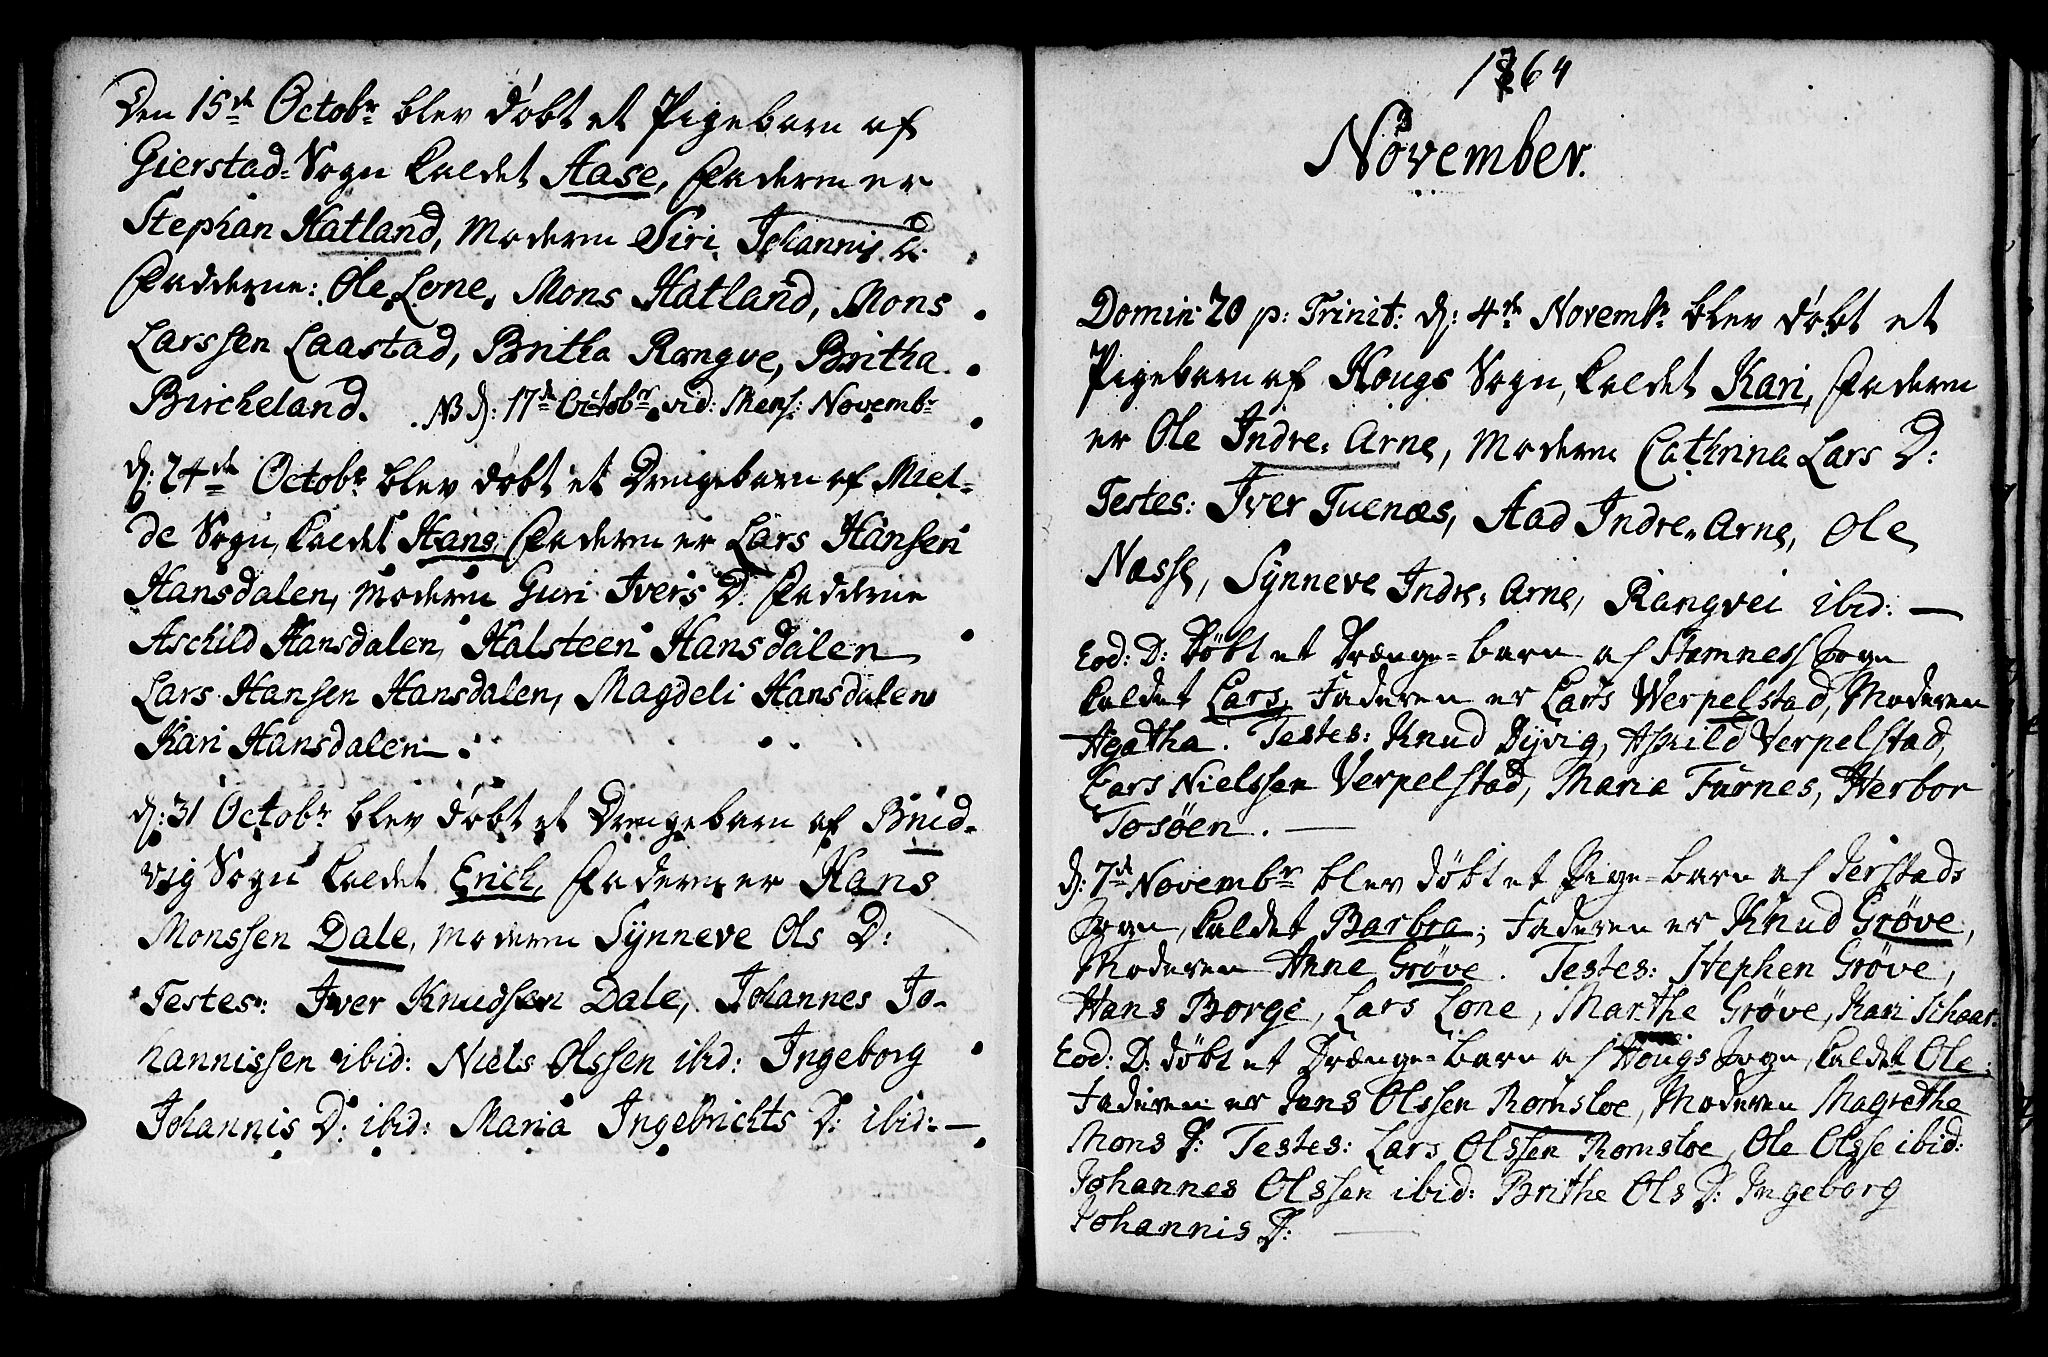 Den 15de Octobr blev døbt et Pigebarn af
Gierstad-Sogn kaldet Aase, Faderen er
Stephan Hatland, Moderen Siri Johannis D:
Fadderne: Ole Lone, Mons Hatland, Mons
Larssen Laastad, Britha Rangve, Britha
Bircheland. NB d: 17de Octobr vid: Mens: Novembr
d: 24de Octobr blev døbt et Drengebarn af Miel-
de Sogn, kaldet Hans, Faderen er Lars Hansen
Hansdalen, Moderen Guri Ivers D. Fadderne
Aschild Hansdalen, Halsteen Hansdalen
Lars Hansen Hansdalen, Magdeli Hansdalen
Kari Hansdalen.
d: 31 Octobr blev døbt et Drengebarn af Brud-
vig Sogn kaldet Erich, Faderen er Hans
Monssen Dale, Moderen Synneve Ols D:
Testes: Iver Knudsen Dale, Johannes Jo-
hannissen ibid: Niels Olssen ibid: Ingeborg
Johannis D: ibid: Maria Ingebrichts D: ibid: —
1764
November.
Domin: 20 p: Trinit: d: 4de Novembr blev døbt et
Pigebarn af Hougs Sogn, kaldet Kari, Faderen
er Ole Indre-Arne, Moderen Cathrina Lars D:
Testes: Iver Tuenæs, Aad Indre-Arne, Ole
Næsse, Synneve Indre-Arne, Rangvei ibid: —
Eod: D: Døbt et Drænge-barn af Stamness Sogn
kaldet Lars, Faderen er Lars Werpelstad, Moderen
Agatha. Testes: Knud Dyvig, Askild Verpelstad,
Lars Nielssen Verpelstad, Maria Furnes, Herbor
Tosøen. —
d: 7de Novembr blev døbt et Pige-barn af Jerstads
Sogn, kaldet Barbra; Faderen er Knud Grøve,
Moderen Anne Grøve. Testes: Stephen Grøve,
Hans Borge, Lars Lone, Marthe Grøve, Kari Schaar.
Eod: D: døbt et Drænge-barn af Hougs Sogn, kaldet Ole;
Faderen er Jens Olssen Romsloe, Moderen Magrethe
Mons D: Testes: Lars Olssen Romsloe, Ole Olsse ibid:
Johannes Olssen ibid: Brithe Ols D: Ingeborg
Johannis D: —